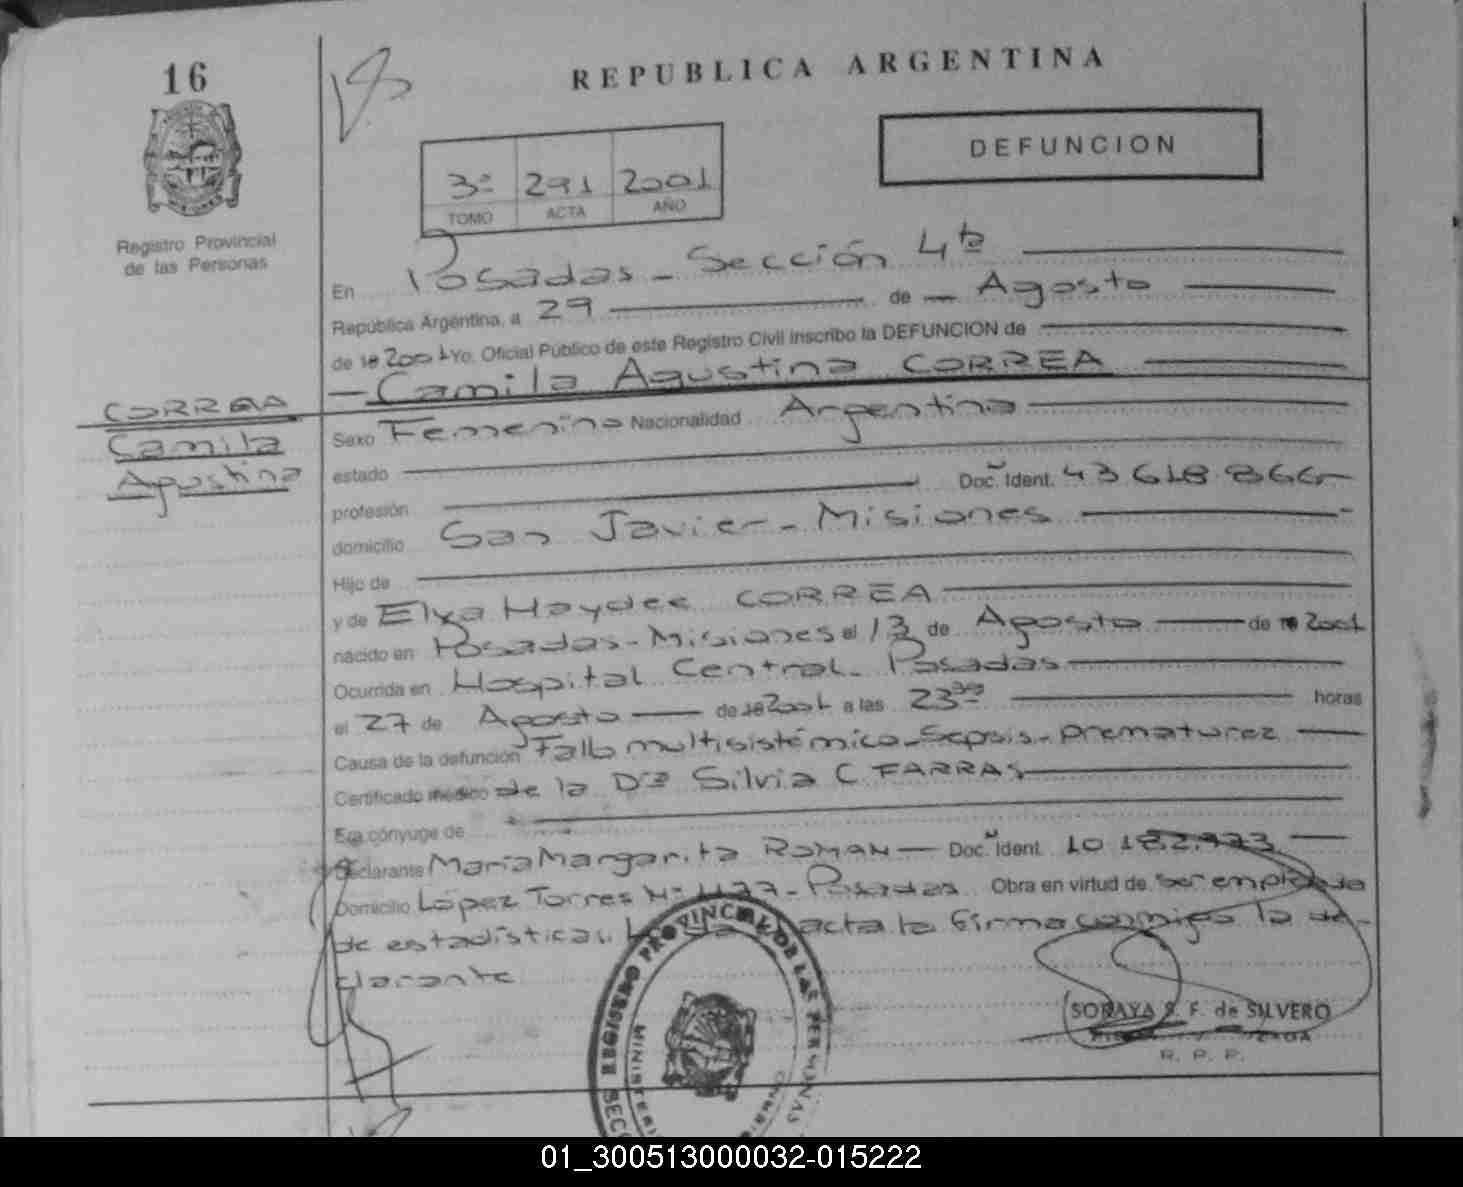 16
REPUBLICA ARGENTINA
DEFUNCION
3º 291 2001
TOMO ACTA AÑO
Registro Provincial
de las Personas
En Posadas - Sección 4ta
República Argentina, a 29 de Agosto
de 19 2001 Yo. Oficial Público de este Registro Civil inscribo la DEFUNCION de
Camila Agustina CORREA
CORREA
Camila
Agustina
Sexo Femenino Nacionalidad Argentina
estado
profesión Doc. Ident. 43 618 866
domicilio San Javier - Misiones
Hijo de
y de Elya Haydee CORREA
nacido en Posadas - Misiones el 13 de Agosto de 19 2001
Ocurrida en Hospital Central - Posadas
el 27 de Agosto de 19 2001 a las 23 30 horas
Causa de la defunción Fallo multisistémico - Sepsis - prematurez
Certificado médico de la Dra Silvia C FARRAS
Era cónyuge de
Declarante María Margarita ROMAN Doc. Ident. 10 182.973
Domicilio López Torres Nº 1177 - Posadas Obra en virtud de ser empleada
de estadísticas. acta la firma conmigo la de-
clarante
REGISTRO PROVINCIAL DE LAS PERSONAS
SORAYA S. F. de SILVERO
R. P. P.
01_300513000032-015222